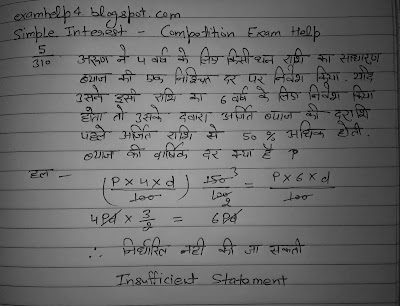 examhelp4.blogspot.com
Simple Interest - Compatition Exam Help
5/310 अरुण ने 4 वर्ष के लिए किसी धन राशि का साधारण
ब्याज की एक निश्चित दर पर निवेश किया. यदि
उसने इसी राशि का 6 वर्ष के लिए निवेश किया
होता तो उसके दवारा अर्जित ब्याज की दराशि
पहले अर्जित राशि से 50 % अधिक होती.
ब्याज की वार्षिक दर क्या है ?
हल - (P x 4 x d / 100) 150 3 / 100 2 = P x 6 x d / 100
4Pd x 3/2 = 6Pd
∴ निर्धारित नही की जा सकती
Insufficient Statement